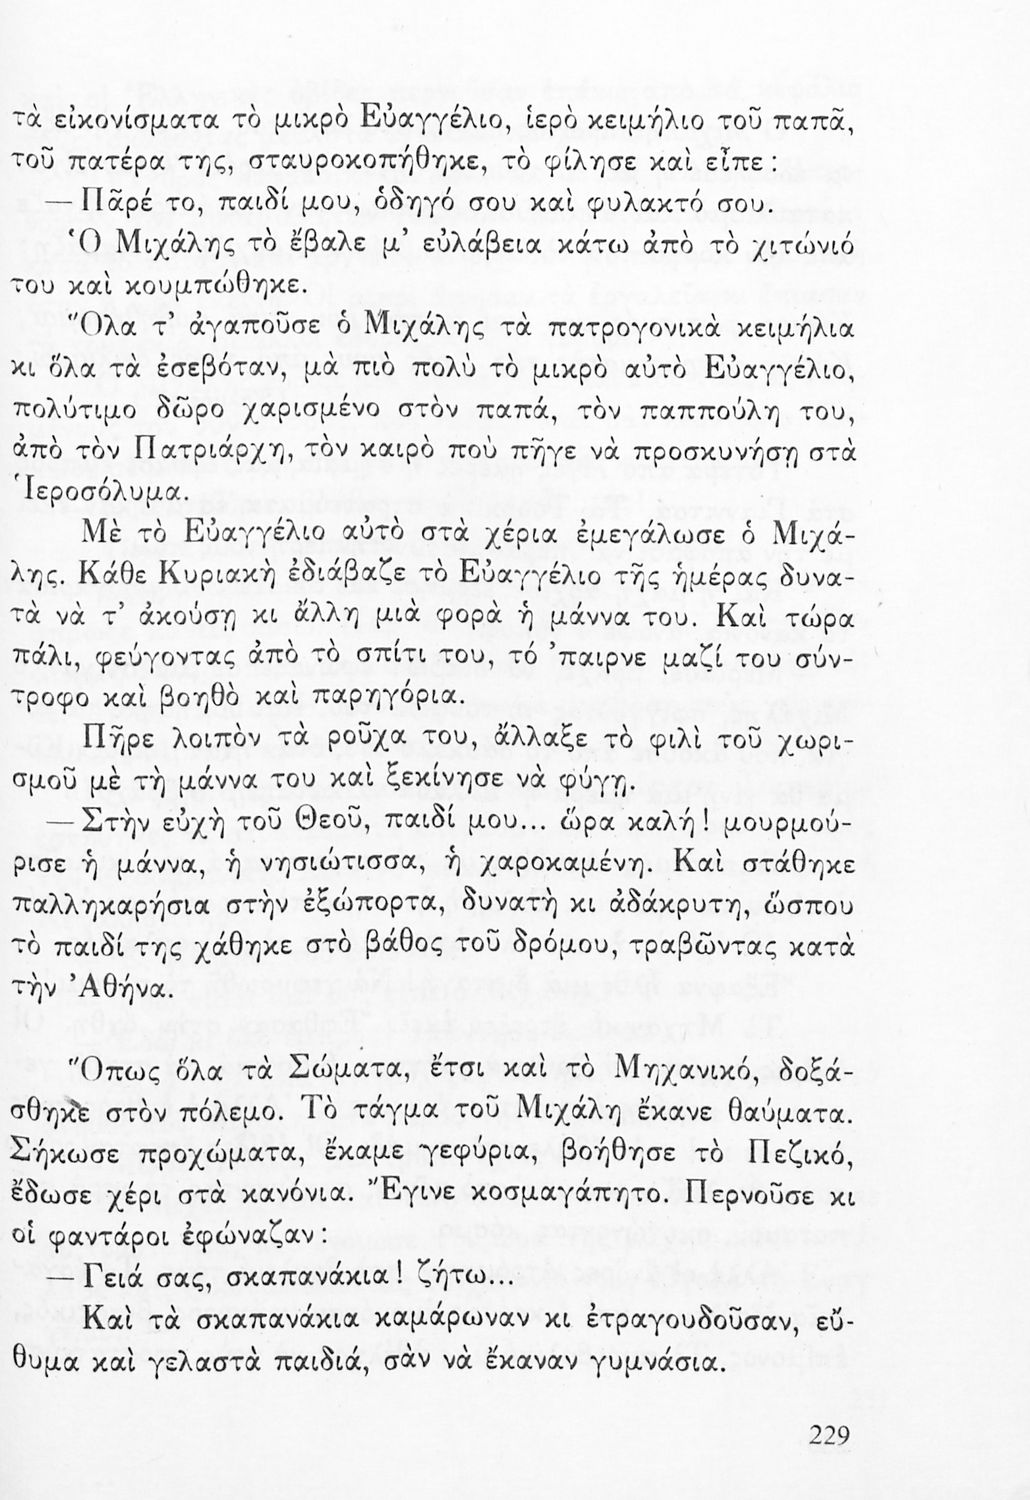 τὰ εἰκονίσματα τὸ μικρὸ Εὐαγγέλιο, ἱερὸ κειμήλιο τοῦ παπᾶ,
τοῦ πατέρα της, σταυροκοπήθηκε, τὸ φίλησε καὶ εἶπε :
— Πᾶρέ το, παιδί μου, ὁδηγό σου καὶ φυλακτό σου.
Ὁ Μιχάλης τὸ ἔβαλε μ’ εὐλάβεια κάτω ἀπὸ τὸ χιτώνιό
του καὶ κουμπώθηκε.
Ὅλα τ’ ἀγαποῦσε ὁ Μιχάλης τὰ πατρογονικὰ κειμήλια
κι ὅλα τὰ ἐσεβόταν, μὰ πιὸ πολὺ τὸ μικρὸ αὐτὸ Εὐαγγέλιο,
πολύτιμο δῶρο χαρισμένο στὸν παπά, τὸν παππούλη του,
ἀπὸ τὸν Πατριάρχη, τὸν καιρὸ ποὺ πῆγε νὰ προσκυνήσῃ στὰ
Ἱεροσόλυμα.
Μὲ τὸ Εὐαγγέλιο αὐτὸ στὰ χέρια ἐμεγάλωσε ὁ Μιχά-
λης. Κάθε Κυριακὴ ἐδιάβαζε τὸ Εὐαγγέλιο τῆς ἡμέρας δυνα-
τὰ νὰ τ’ ἀκούσῃ κι ἄλλη μιὰ φορὰ ἡ μάννα του. Καὶ τώρα
πάλι, φεύγοντας ἀπὸ τὸ σπίτι του, τό ’παιρνε μαζί του σύν-
τροφο καὶ βοηθὸ καὶ παρηγόρια.
Πῆρε λοιπὸν τὰ ροῦχα του, ἄλλαξε τὸ φιλὶ τοῦ χωρι-
σμοῦ μὲ τὴ μάννα του καὶ ξεκίνησε νὰ φύγῃ.
— Στὴν εὐχὴ τοῦ Θεοῦ, παιδί μου... ὥρα καλή ! μουρμού-
ρισε ἡ μάννα, ἡ νησιώτισσα, ἡ χαροκαμένη. Καὶ στάθηκε
παλληκαρήσια στὴν ἐξώπορτα, δυνατὴ κι ἀδάκρυτη, ὥσπου
τὸ παιδί της χάθηκε στὸ βάθος τοῦ δρόμου, τραβῶντας κατὰ
τὴν Ἀθήνα.
Ὅπως ὅλα τὰ Σώματα, ἔτσι καὶ τὸ Μηχανικό, δοξά-
σθηκε στὸν πόλεμο. Τὸ τάγμα τοῦ Μιχάλη ἔκανε θαύματα.
Σήκωσε προχώματα, ἔκαμε γεφύρια, βοήθησε τὸ Πεζικό,
ἔδωσε χέρι στὰ κανόνια. Ἔγινε κοσμαγάπητο. Περνοῦσε κι
οἱ φαντάροι ἐφώναζαν :
— Γειά σας, σκαπανάκια ! ζήτω...
Καὶ τὰ σκαπανάκια καμάρωναν κι ἐτραγουδοῦσαν, εὔ-
θυμα καὶ γελαστὰ παιδιά, σὰν νὰ ἔκαναν γυμνάσια.
229